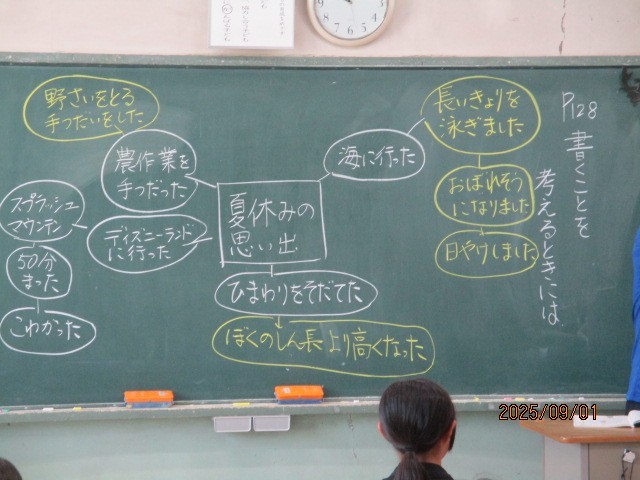 P128 書くことを
考えるときには
夏休みの
思い出
海に行った
長いきょりを
泳ぎました
おぼれそう
になりました
日やけしました
農作業を
手つだった
野さいをとる
手つだいをした
ディズニーランド
に行った
スプラッシュ
マウンテン
50分
まった
こわかった
ひまわりをそだてた
ぼくのしん長より高くなった
2025/09/01